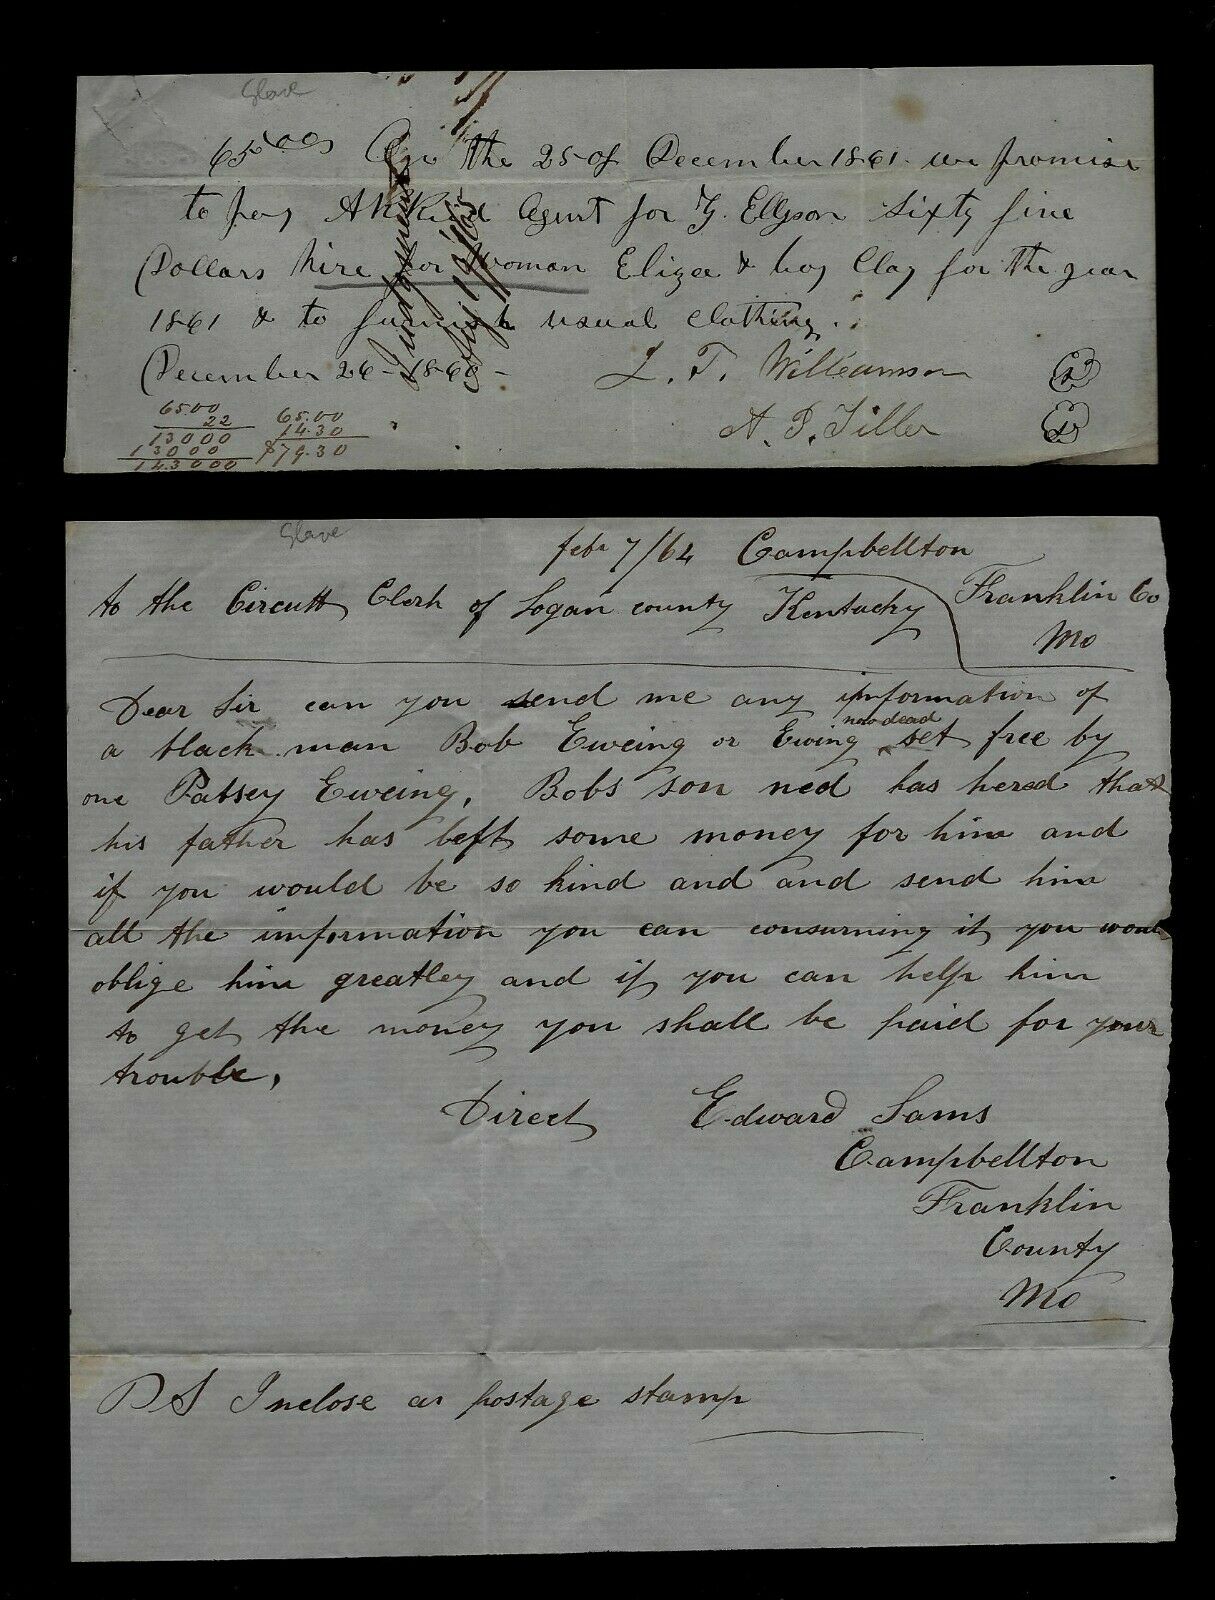 Slave
65.00 On the 25 of December 1861 we promise
to pay A Kid Agent for Y. Ellyson sixty five
Dollars hire for woman Eliza & boy Clay for the year
1861 & to furnish usual clothing.
December 26 - 1860 - L. T. Williamson
A. P. Tiller
Judgment
July 19/65
65.00
22
13000
13000
143000
65.00
14.30
$79.30
Slave
feb. 7/64 Campbellton
to the Circutt Clerk of Logan county Kentucky Franklin Co
Mo
Dear Sir can you send me any information of
a black man Bob Eweing or Ewing now dead set free by
one Patsey Eweing. Bobs son ned has herad that
his father has left some money for him and
if you would be so kind and and send him
all the information you can consurning it you woul
oblige him greatley and if you can help him
to get the money you shall be paid for your
trouble.
Direct Edward Sams
Campbellton
Franklin
County
Mo
PS Inclose a postage stamp